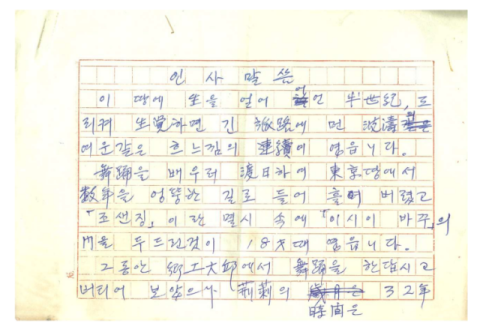 인사말씀
이 땅에 生을 얻어 언 半世紀, 도
리켜 生覺하면 긴 旅路에 먼 波濤
여운같은 흐느낌의 連續이 였읍니다.
舞踊을 배우러 渡日하여 東京땅에서
数年을 엉뚱한 길로 들어 흘려 버렸고
「조센징」이란 멸시 속에 「이시이 바꾸」의
門을 두드린것이 18才때 였읍니다.
그동안 鄕土大邱에서 舞踊을 한답시고
버리어 보았으나 荊莿의 32年
時間은